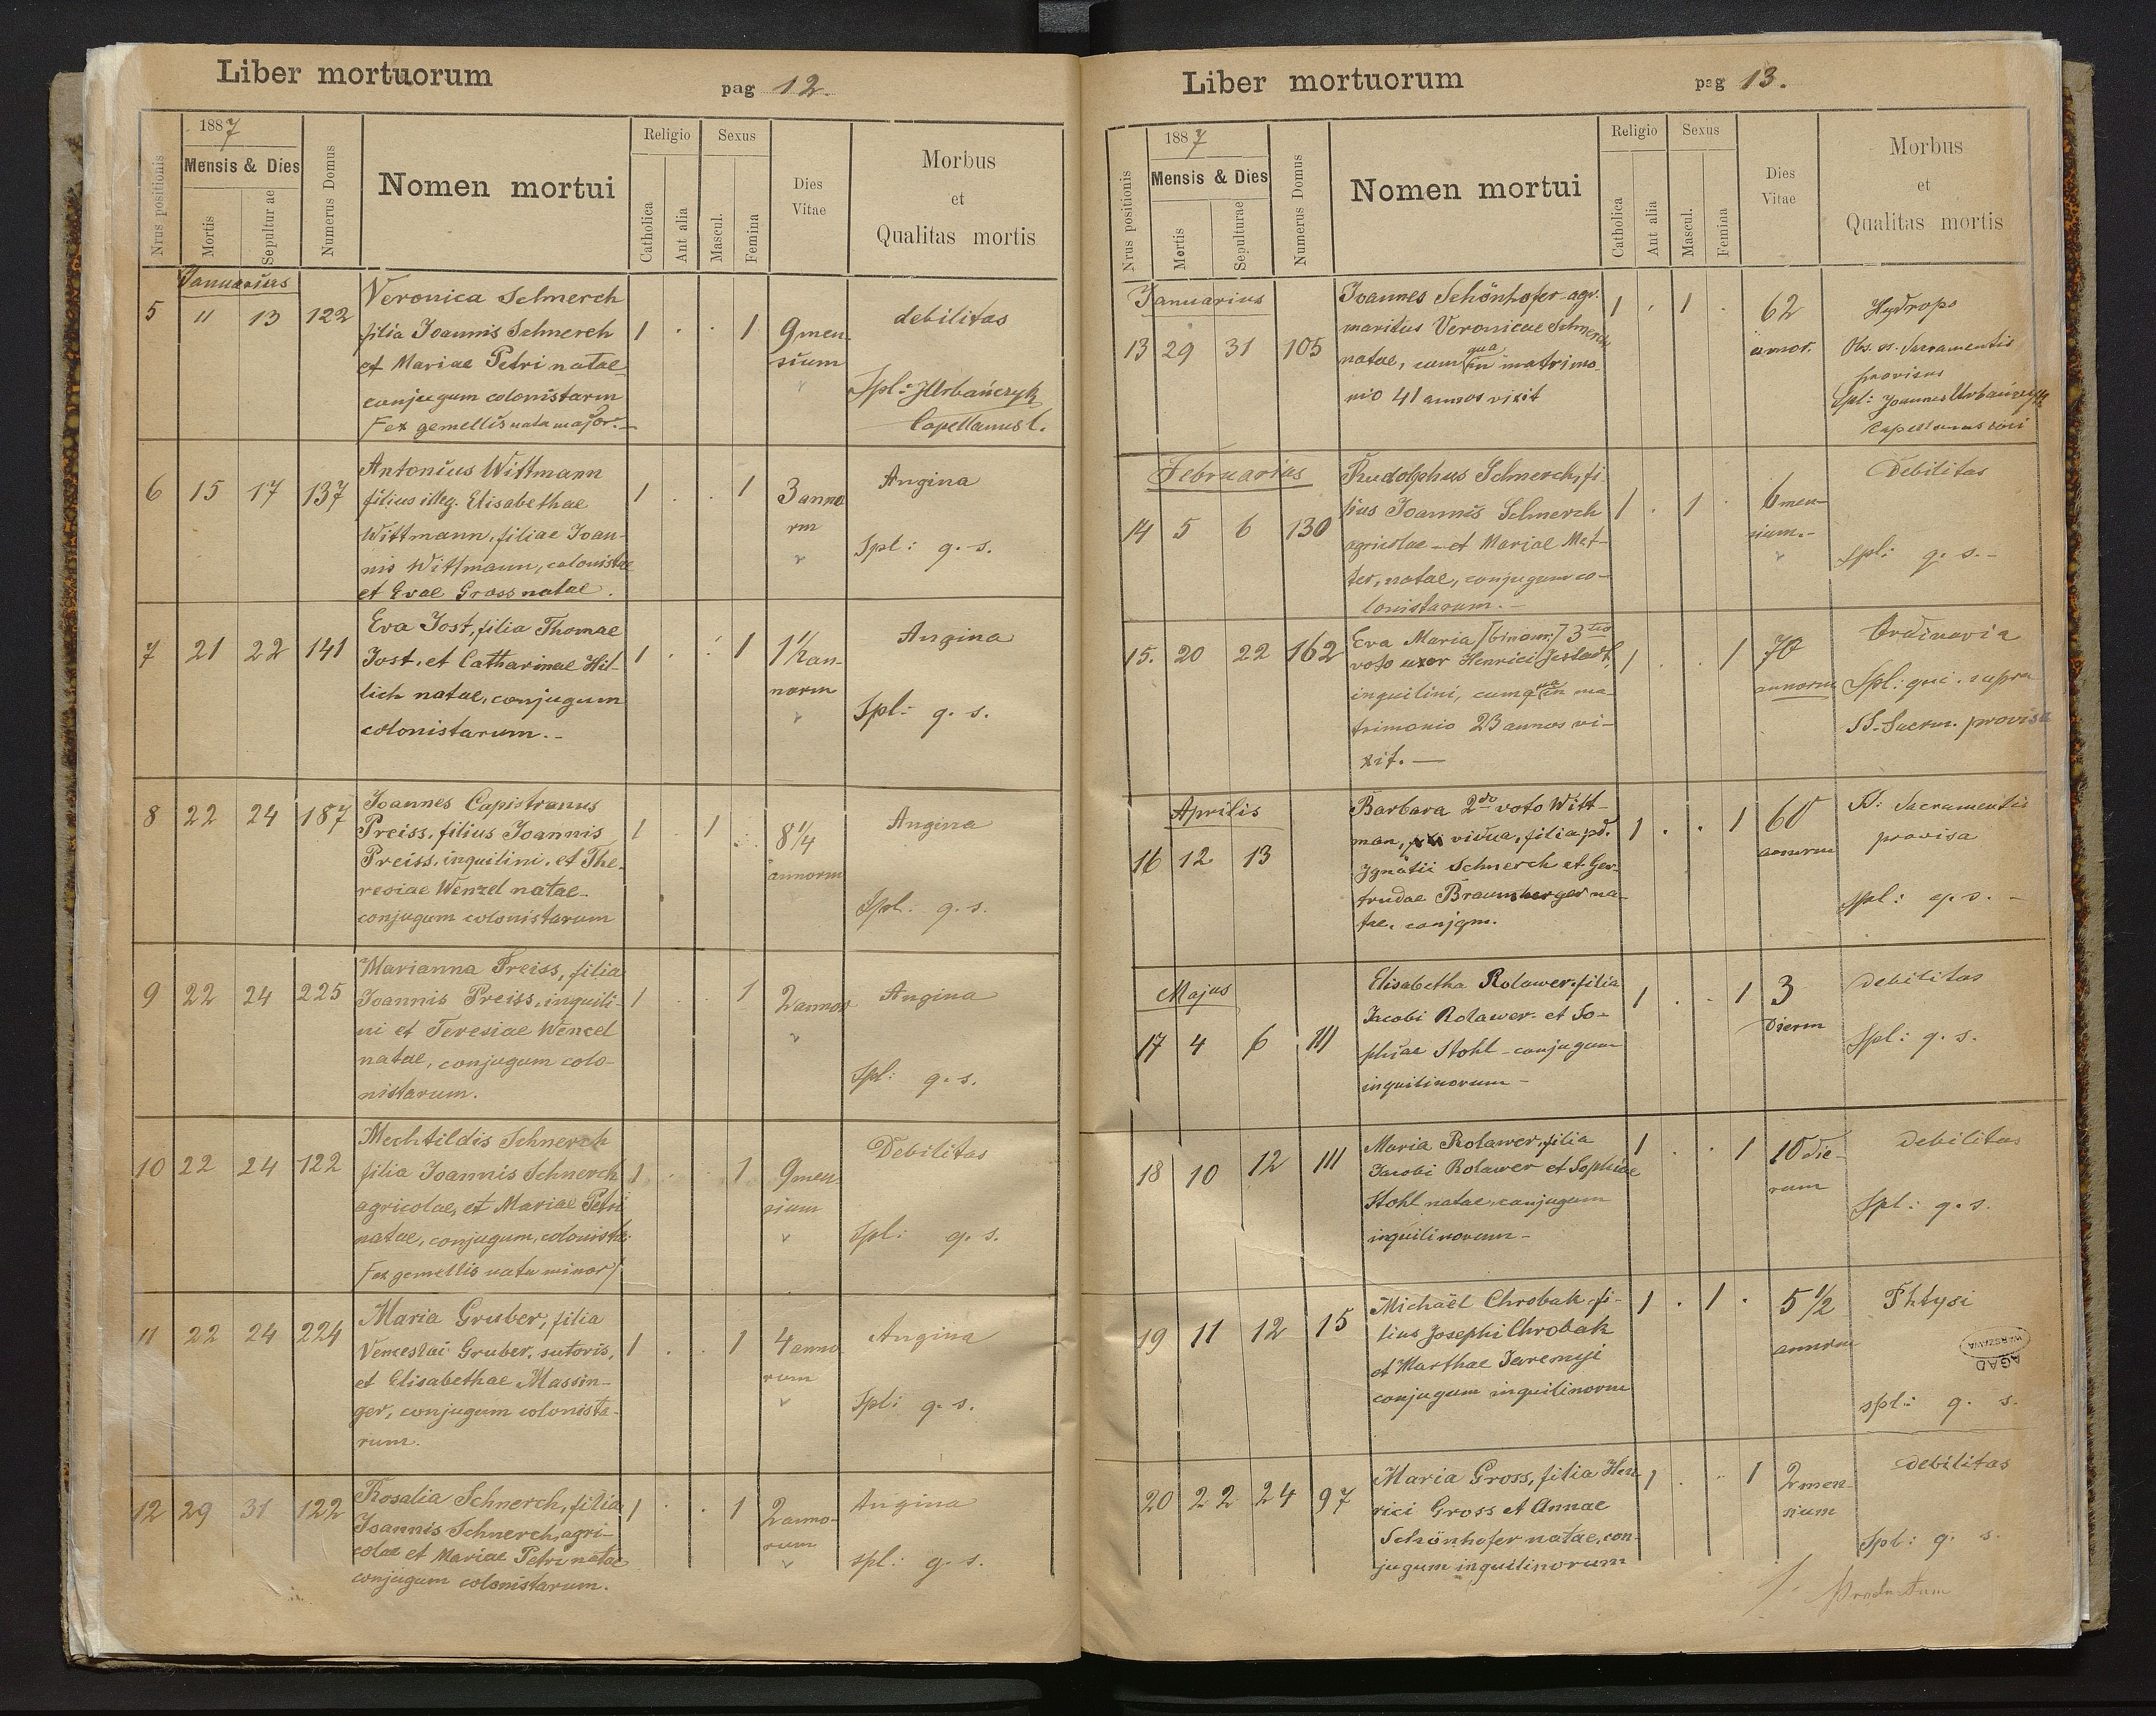 Liber mortuorum
pag 12.
1887
Mensis & Dies
Nrus positionis
Mortis
Sepulturae
Numerus Domus
Nomen mortui
Religio
Catholica
Aut alia
Sexus
Mascul.
Femina
Dies
Vitae
Morbus
et
Qualitas mortis
Januarius
5 11 13 122
Veronica Schnerch
filia Joannis Schnerch
et Mariae Petri natae
conjugum colonistarm
ex gemellis nata major.
1 . . 1
9 men-
sium
debilitas
Spl: J Urbańczyk
Capellanus l.
6 15 17 137
Antonius Wittmann
filius illeg. Elisabethae
Wittmann, filiae Joan-
nis Wittmann, colonistae
et Evae Gross natae.
1 . . 1
3 anno
rm
Angina
Spl: q. s.
7 21 22 141
Eva Jost, filia Thomae
Jost, et Catharinae Hil-
lich natae, conjugum
colonistarum.-
1 . . 1
1 1/2 an-
norm
Angina
Spl: q. s.
8 22 24 187
Joannes Capistranus
Preiss, filius Joannis
Preiss, inquilini, et The-
resiae Wenzel natae
conjugum colonistarum
1 . 1 .
8 1/4
annorm
Angina
Spl. q. s.
9 22 24 225
Marianna Preiss, filia
Joannis Preiss, inquili-
ni et Teresiae Wenzel
natae, conjugum colo-
nistarum.
1 . . 1
2 annor
Angina
Spl: q. s.
10 22 24 122
Mechtildis Schnerch
filia Joannis Schnerch
agricolae, et Mariae Petri
natae, conjugum, colonista.
/ex gemellis natu minor/
1 . . 1
9 men-
sium
Debilitas
Spl: q. s.
11 22 24 224
Maria Gruber, filia
Venceslai Gruber, sutoris,
et Elisabethae Massin-
ger, conjugum colonista-
rum.
1 . . 1
4 anno
rum
Angina
Spl: q. s.
12 29 31 122
Rosalia Schnerch, filia
Joannis Schnerch, agri-
colae et Mariae Petri natae
conjugum colonistarum.
1 . . 1
2 anno-
rum
Angina
spl.: q. s.
Liber mortuorum
pag 13.
1887
Mensis & Dies
Nrus positionis
Mortis
Sepulturae
Numerus Domus
Nomen mortui
Religio
Catholica
Aut alia
Sexus
Mascul.
Femina
Dies
Vitae
Morbus
et
Qualitas mortis
Januarius
13 29 31 105
Joannes Schönhofer agr.
maritus Veronicae Schnerch
natae, cum qua in matrimo-
nio 41 annos vixit
1 . 1 .
62
annor.
Hydrops
Sacramentis
provisus
Spl: Joannes Urbańczyk
Capellanus
Februarius
14 5 6 130
Rudolphus Schnerch, fi-
lius Joannis Schnerch
agricolae - et Mariae Met-
ter, natae, conjugum co-
lonistarum.-
1 . 1 .
6 men-
sium.-
Debilitas
Spl: q. s.-
15. 20 22 162
Eva Maria [binom:] 3tio
voto uxor Henrici Jestadt,
inquilini, cum qua in ma-
trimonio 23 annos vi-
xit.-
1 . . 1
70
annorm
Ordinaria
Spl: qui. supra
SS. Sacrm. provisa
Aprilis
16 12 13
Barbara 2do voto Witt-
man, vidua, filia pd.
Ignatii Schnerch et Ger-
trudae Braunberger na-
tae, conjgm.
1 . . 1
60
annrm
SS: Sacramentis
provisa
Spl: q. s. -
Majus
17 4 6 111
Elisabetha Rolawer, filia
Jacobi Rolawer et So-
phiae Stohl - conjugum
inquilinorum -
1 . . 1
3
Dierm
Debilitas
Spl: q. s.
18 10 12 111
Maria Rolawer, filia
Jacobi Rolawer et Sophiae
Stohl natae, conjugum
inquilinorum -
1 . . 1
10 die-
rum
Debilitas
Spl: q. s.
19 11 12 15
Michaël Chrobak, fi-
lius Josephi Chrobak
et Marthae Jaremiji
conjugum inquilinorm
1 . 1 .
5 1/2
annrm
Phtysi
AGAD
WARSZAWA
spl.: q. s.
20 22 24 97
Maria Gross, filia Hen-
rici Gross et Annae
Schönhofer natae, con-
jugum inquilinorum
1 . . 1
2 men-
sium
Debilitas
Spl: q. s.